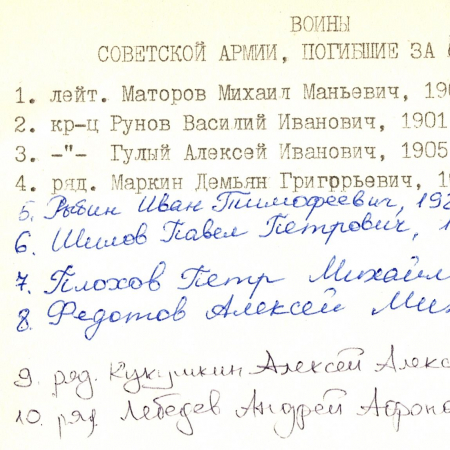 ВОИНЫ
СОВЕТСКОЙ АРМИИ, ПОГИБШИЕ ЗА
1. лейт. Маторов Михаил Маньевич, 190
2. кр-ц Рунов Василий Иванович, 1901
3. -"- Гулый Алексей Иванович, 1905
4. ряд. Маркин Демьян Григорьевич, 1
5. Рыбин Иван Тимофеевич, 192
6. Шилов Павел Петрович, 1
7. Плохов Петр Михайл
8. Федотов Алексей Мих
9. ряд. Кукушкин Алексей Алекс
10. ряд. Лебедев Андрей